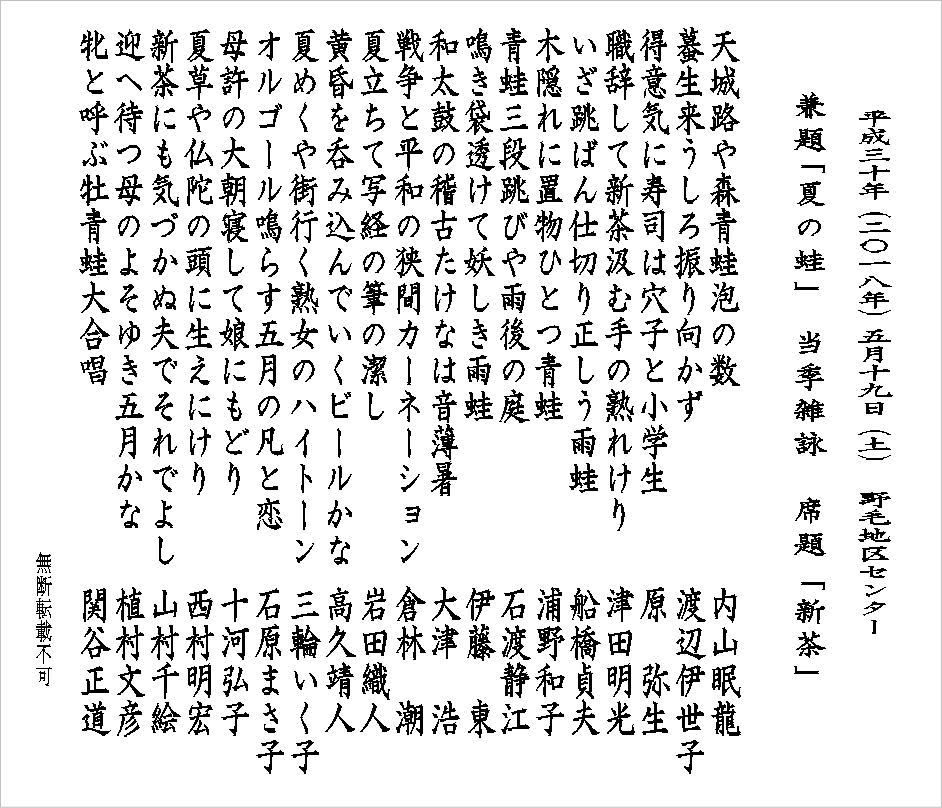 平成三十年（二〇一八年）五月十九日（土）　野毛地区センター
兼題「夏の蛙」　当季雑詠　席題「新茶」
天城路や森青蛙泡の数　内山眠龍
蟇生来うしろ振り向かず　渡辺伊世子
得意気に寿司は穴子と小学生　原　弥生
職辞して新茶汲む手の熟れけり　津田明光
いざ跳ばん仕切り正しう雨蛙　船橋貞夫
木隠れに置物ひとつ青蛙　浦野和子
青蛙三段跳びや雨後の庭　石渡静江
鳴き袋透けて妖しき雨蛙　伊藤　東
和太鼓の稽古たけなは音薄暑　大津　浩
戦争と平和の狭間カーネーション　倉林　潮
夏立ちて写経の筆の潔し　岩田織人
黄昏を呑み込んでいくビールかな　高久靖人
夏めくや街行く熟女のハイトーン　三輪いく子
オルゴール鳴らす五月の凡と恋　石原まさ子
母許の大朝寝して娘にもどり　十河弘子
夏草や仏陀の頭に生えにけり　西村明宏
新茶にも気づかぬ夫でそれでよし　山村千絵
迎へ待つ母のよそゆき五月かな　植村文彦
牝と呼ぶ牡青蛙大合唱　関谷正道
無断転載不可